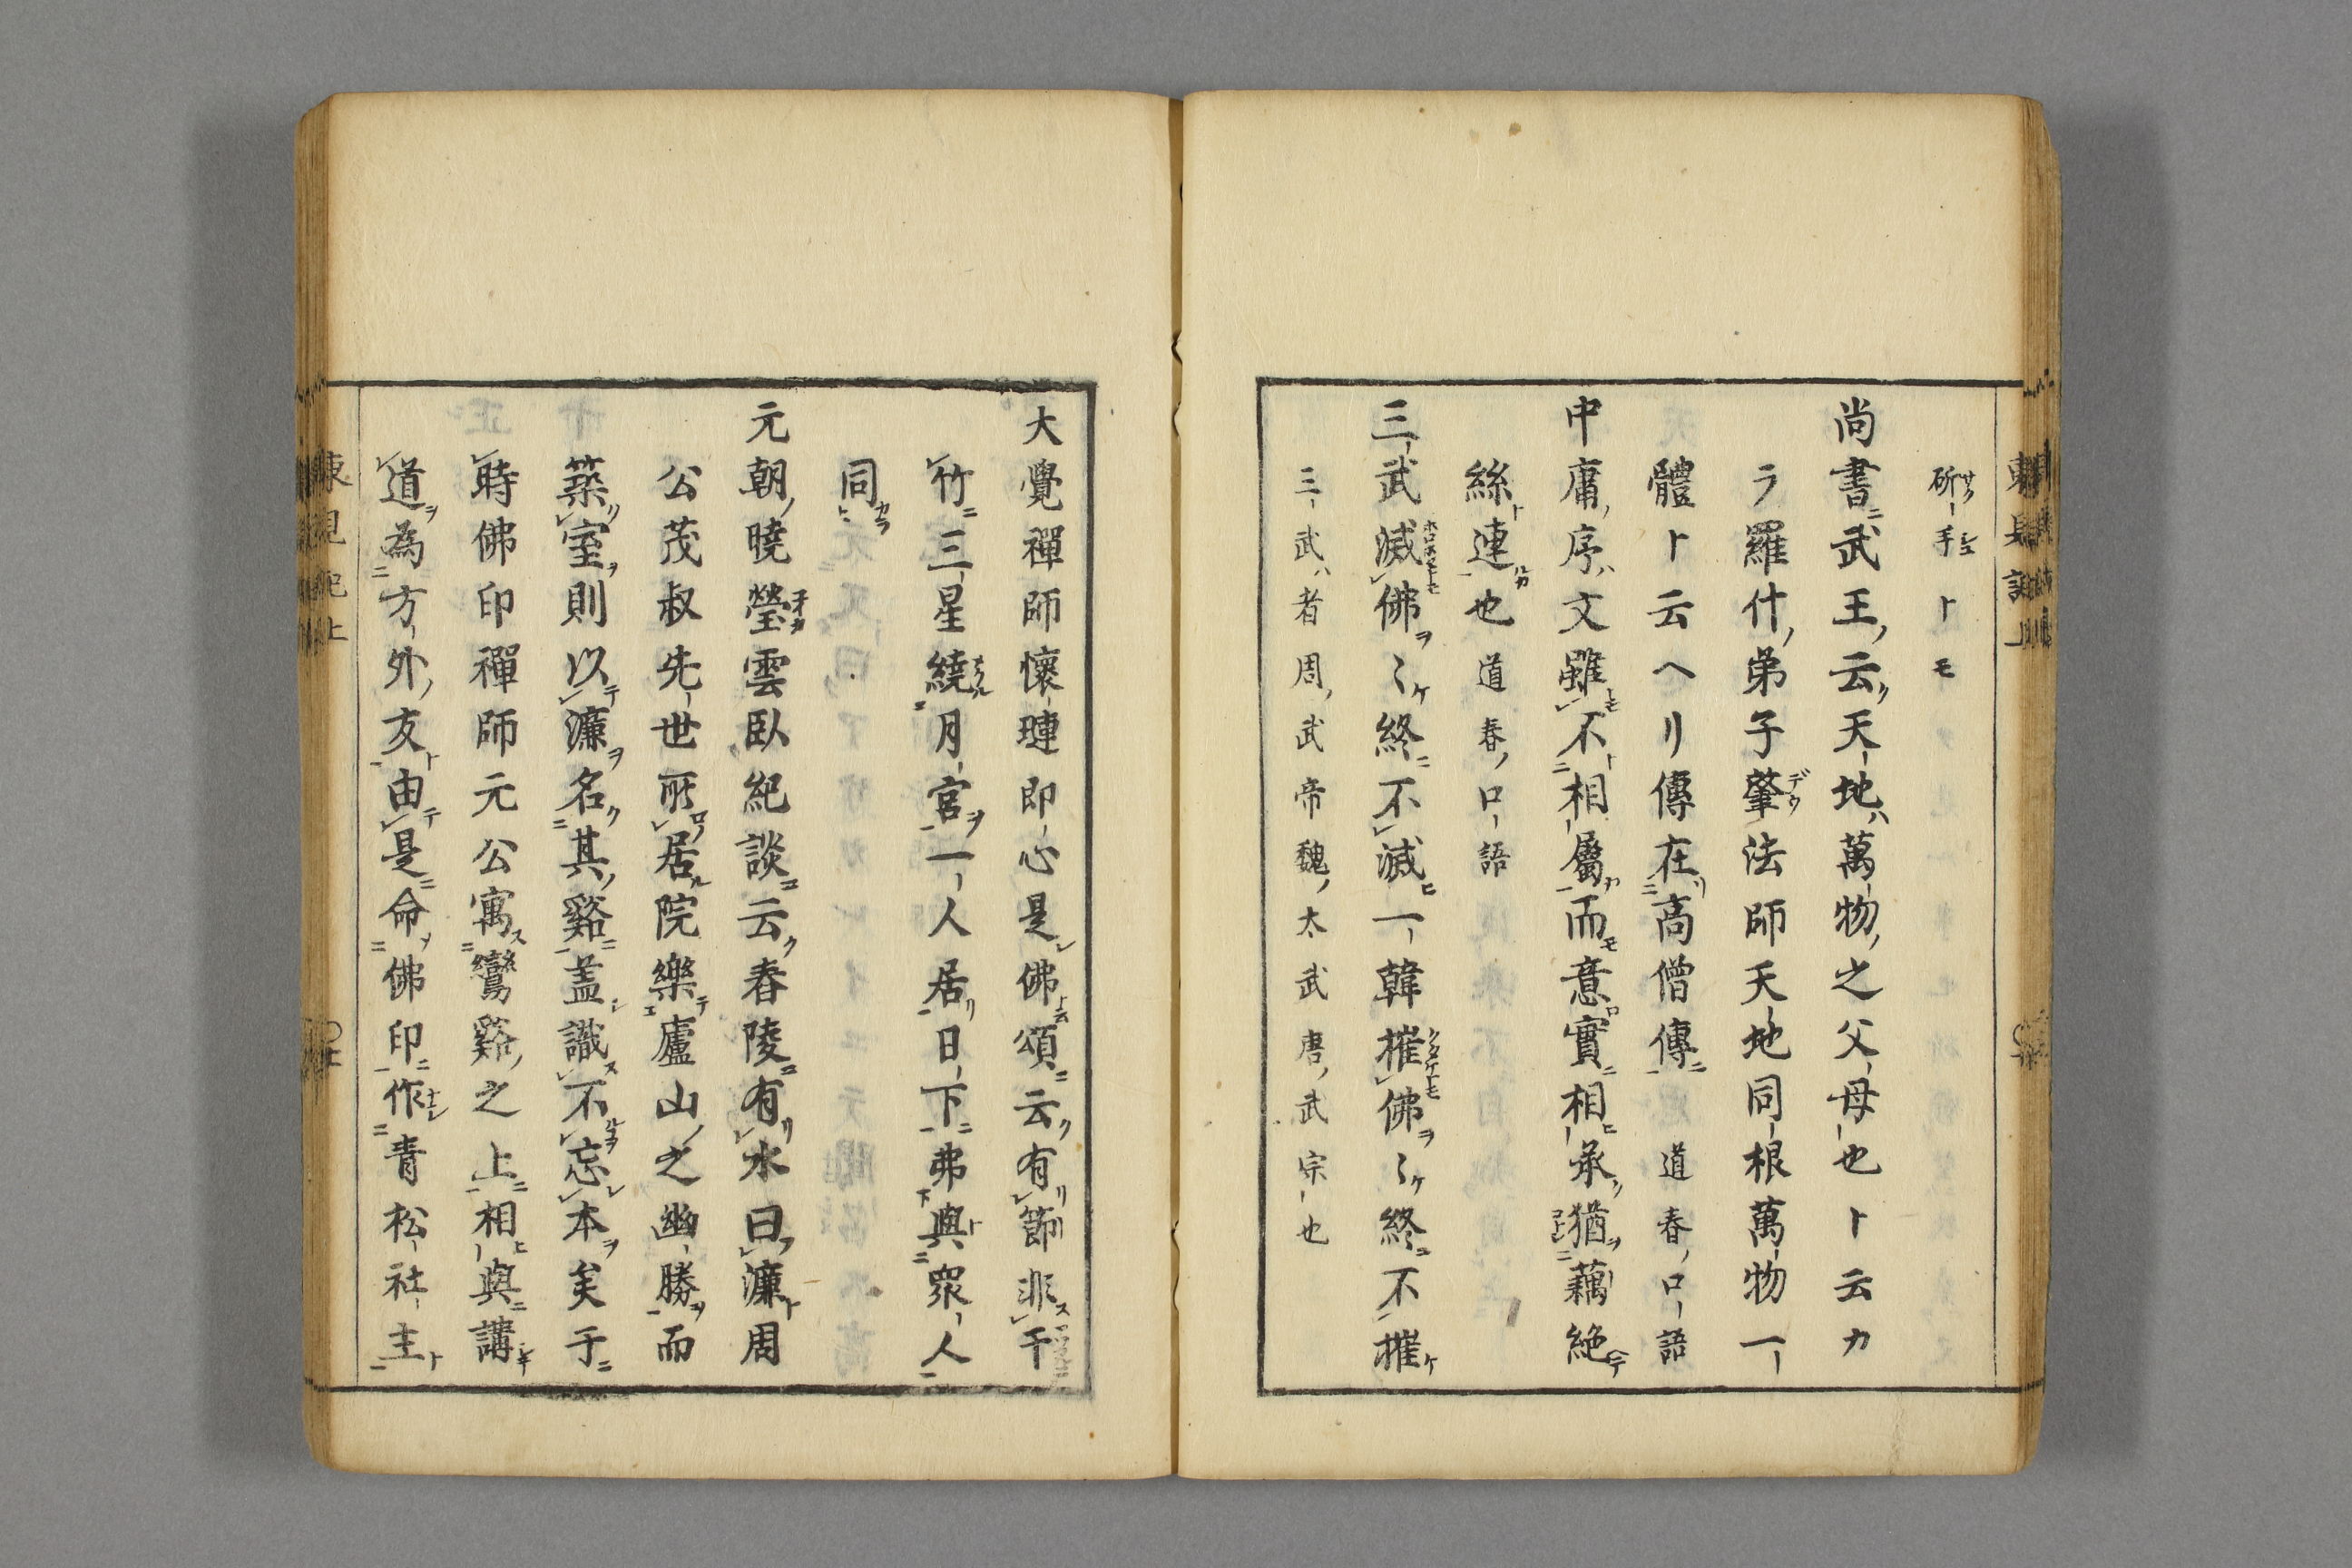 斫手トモ
尚書武王云天地萬物之父母也ト云カ
ラ羅什弟子肇法師天地同根萬物一
體ト云ヘリ傳在高僧傳道春口語
中庸序文雖不相屬而意實相承猶藕絶
絲連也道春口語
三武滅佛〻終不滅一韓摧佛〻終不摧
三武者周武帝魏太武唐武宗也
大覺禪師懷璉即心是佛頌云有節非干
竹三星繞月宮一人居日下弗與衆人
同
元朝曉瑩雲臥紀談云舂陵有水曰濂周
公茂叔先世所居院樂廬山之幽勝而
築室則以濂名其谿盖識不忘本矣于
時佛印禪師元公寓鸞谿之上相與講
道為方外友由是命佛印作青松社主
東見記上